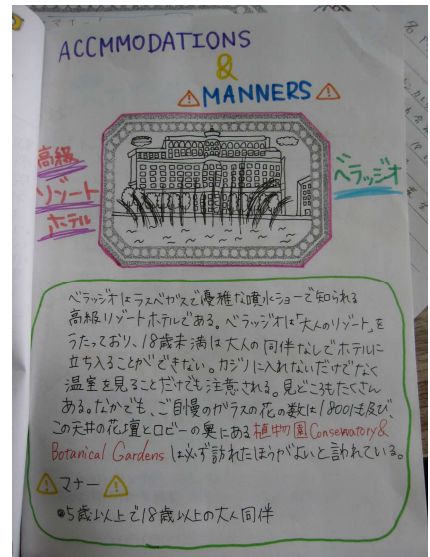 マナー!
ACCMMODATIONS
&
⚠MANNERS⚠
高級
リゾート
ホテル
ベラッジオ
ベラッジオはラスベガスで優雅な噴水ショーで知られる
高級リゾートホテルである。ベラッジオは「大人のリゾート」を
うたっており、18歳未満は大人の同伴なしでホテルに
立ち入ることができない。カジノに入れないだけでなく
温室を見ることだけでも注意される。見どころもたくさん
ある。なかでも、ご自慢のガラスの花の数は1800にも及び、
この天井の花壇とロビーの奥にある植物園Conservatory&
Botanical Gardens は必ず訪れたほうがよいと言われている。
⚠マナー⚠
●5歳以上で18歳以上の大人同伴